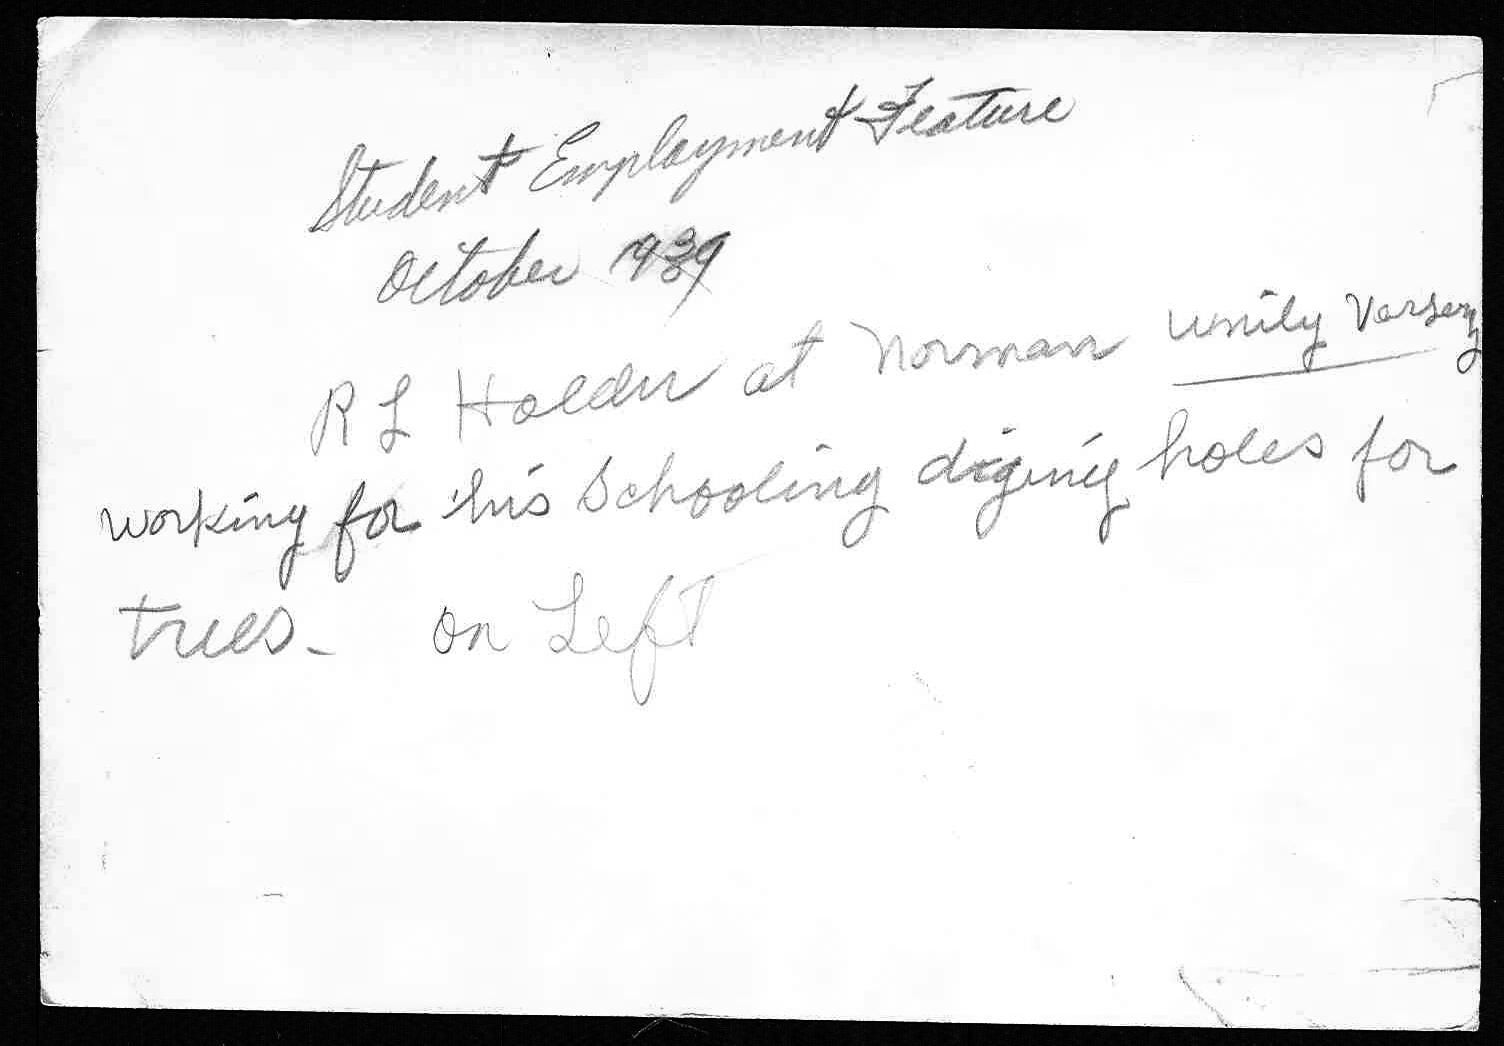 Student Employment Feature
October 1939
R L Holder at Norman Unily Versery
working for his schooling diging holes for
trees. on Left